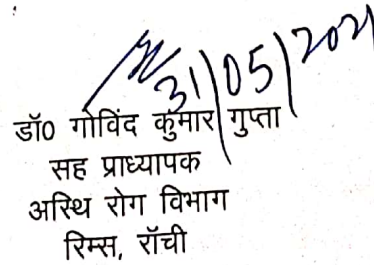 31/05/2021
डॉ0 गोविंद कुमार गुप्ता
सह प्राध्यापक
अस्थि रोग विभाग
रिम्स, राँची